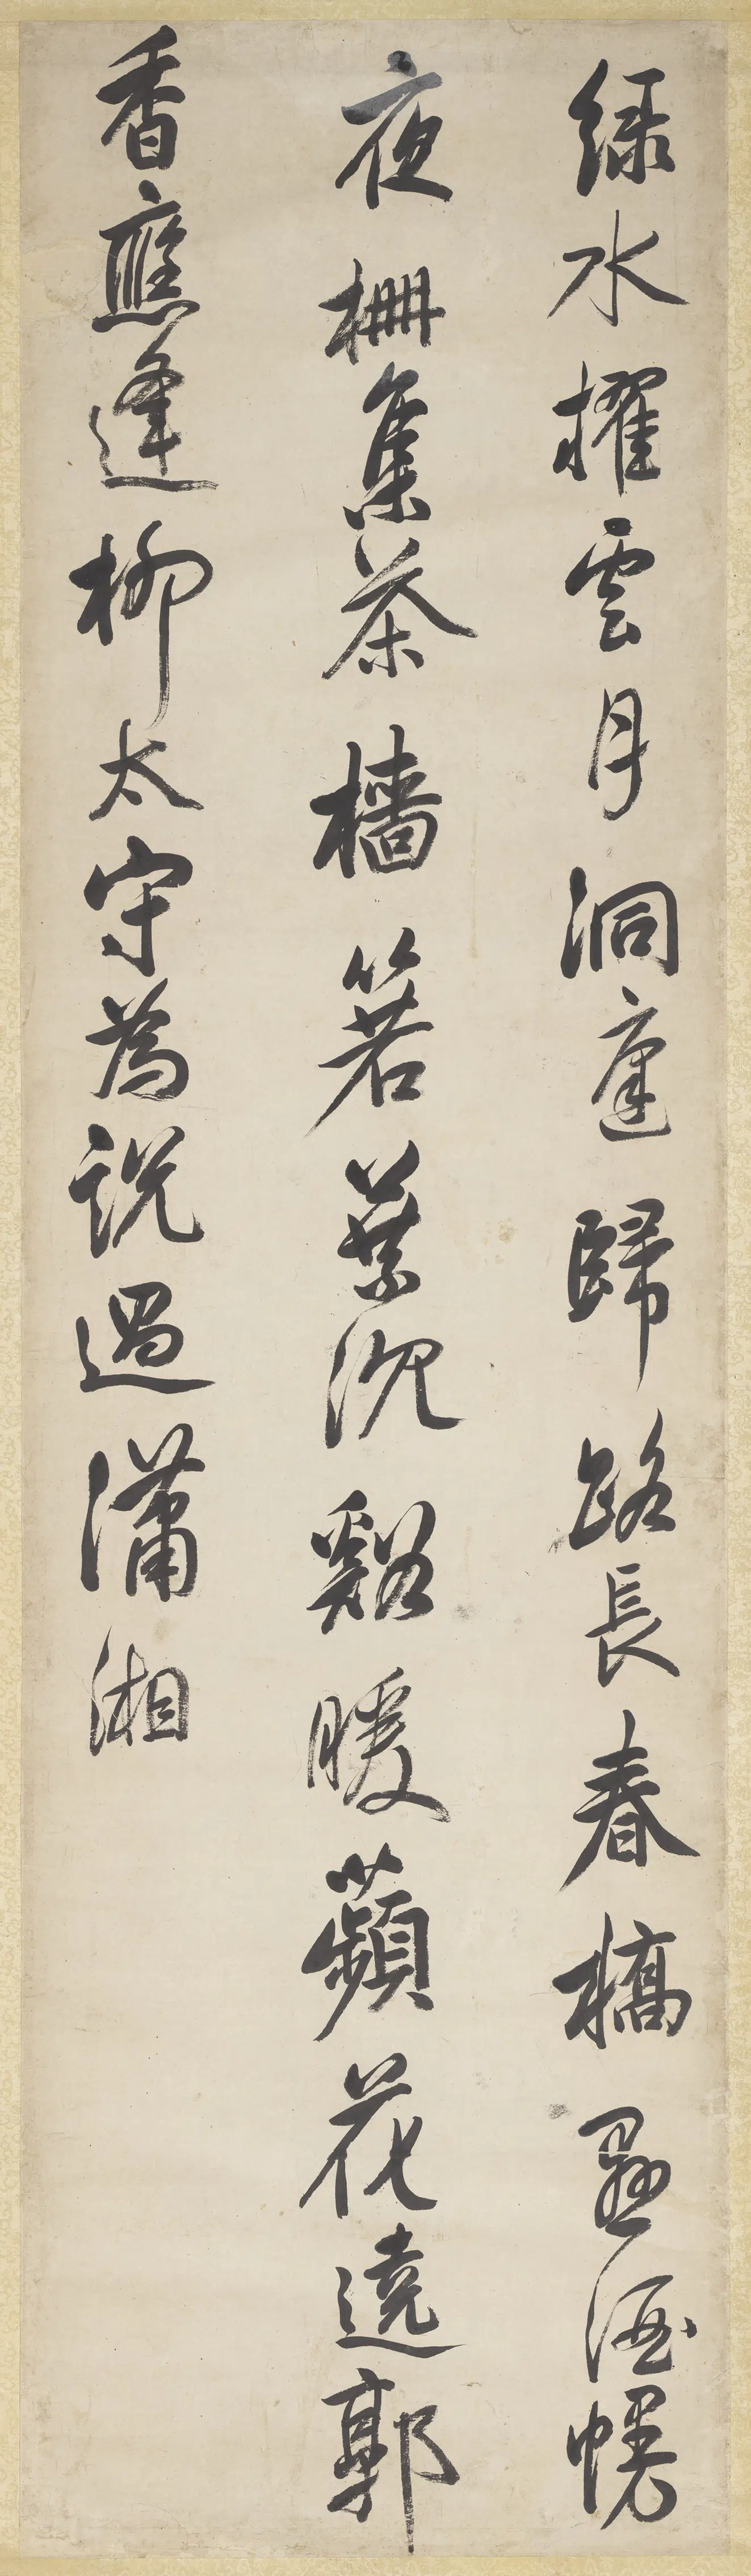 綠水櫂雲月洞庭歸路長春橋懸酒幔
夜柵集茶檣箬葉沉谿暖蘋花遶郭
香應逢柳太守為說過瀟湘